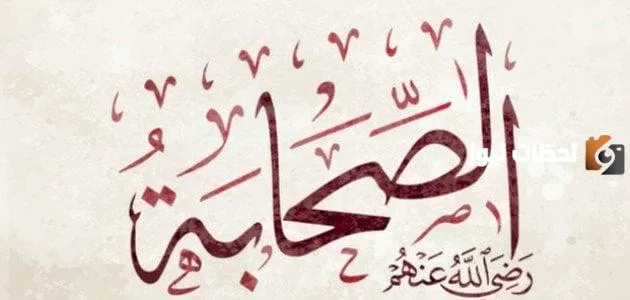 الصَّحَابَةُ
رَضِيَ اللَّهُ عَنْهُمْ
لحظات نيوز